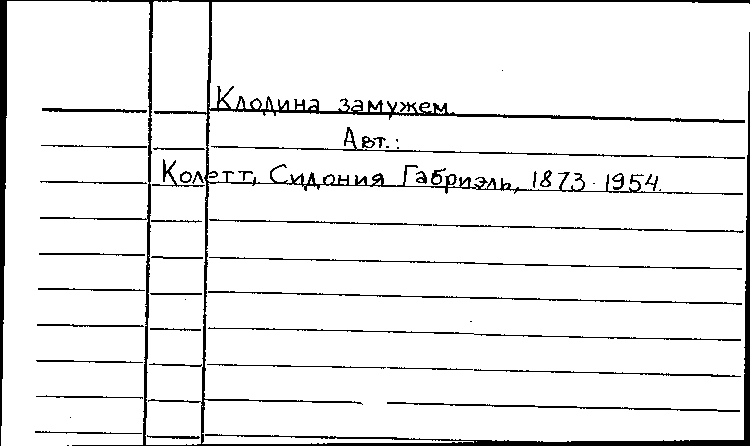 Клодина замужем.
Авт.:
Колетт, Сидония Габриэль, 1873-1954.